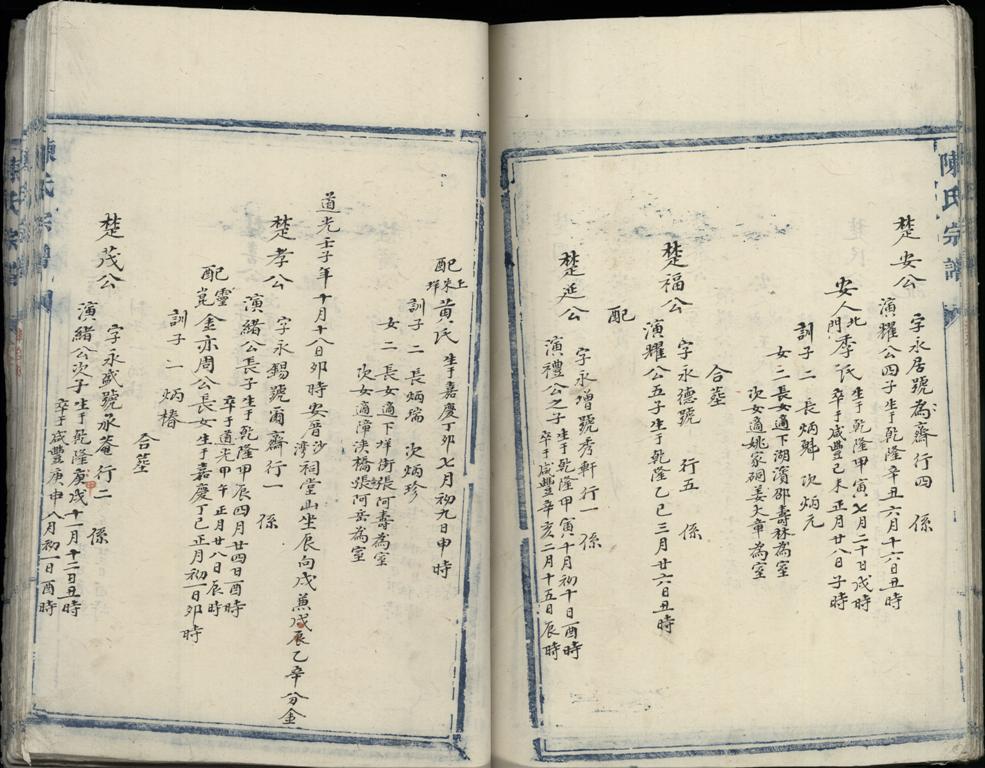 陳氏宗譜
楚安公 字永居號為齋行四 係
演耀公四子生于乾隆辛丑六月十六日丑時
安人北門季氏 生于乾隆甲寅七月二十日戌時
卒于咸豐己未正月廿八日子時
訓子二 長炳魁 次炳元
女二 長女適下湖濱邵壽林為室
次女適姚家硐姜天章為室
合塟
楚福公 字永德號 行五 係
演耀公五子生于乾隆乙巳三月廿六日丑時
配
楚延公 字永增號秀軒行一 係
演禮公之子 生于乾隆甲寅十月初十日酉時
卒于咸豐辛亥二月十五日辰時
配上來黃氏 生于嘉慶丁卯七月初九日申時
訓子二 長炳瑞 次炳珍
女二 長女適下垟街張阿壽為室
次女適漳泱橋張阿岳為室
道光壬子年十月十八日卯時安厝沙灣祠堂山坐辰向戌兼戊辰乙辛分金
楚孝公 字永錫號甫齋行一 係
演緒公長子 生于乾隆甲辰四月廿四日酉時
卒于道光甲午正月廿八日辰時
配靈崑金亦周公長女生于嘉慶丁巳正月初一日卯時
訓子一炳椿
合塟
楚茂公 字永盛號永菴 行二 係
演緒公次子 生于乾隆庚戌十一月十二日丑時
卒于咸豐庚申八月初一日酉時
陳氏宗譜